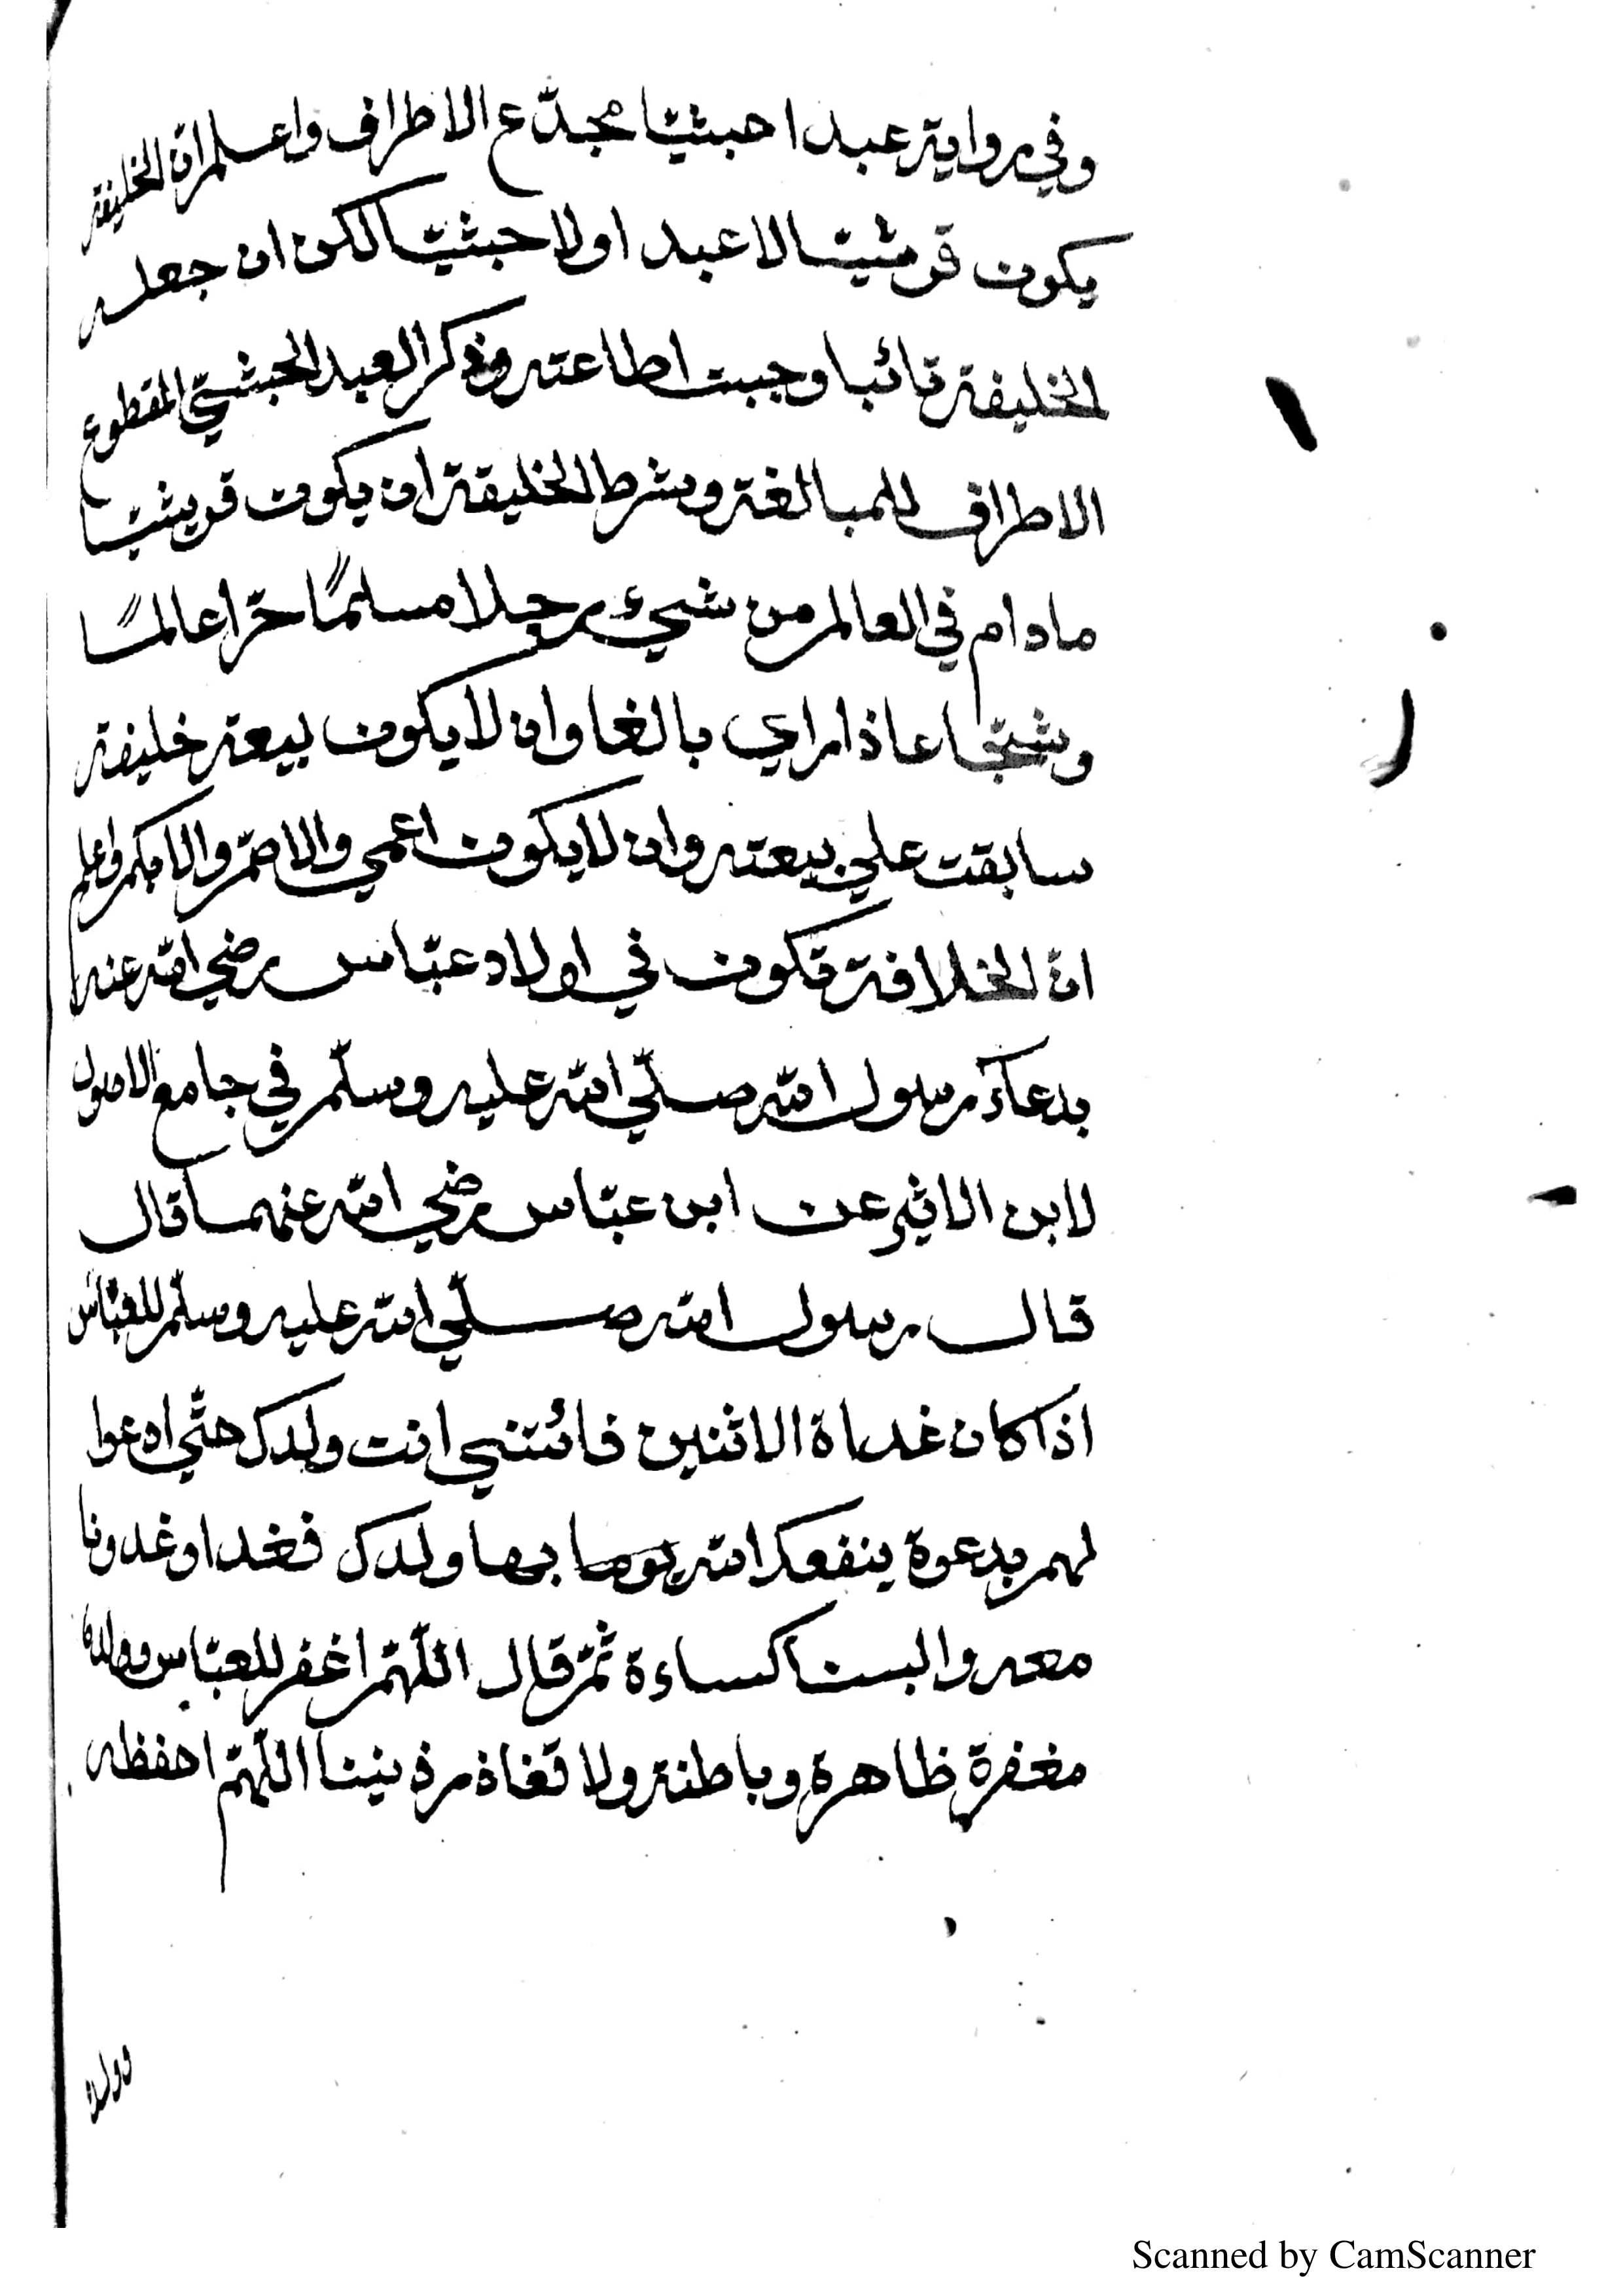 وفي رواية عبدا حبشيّا مجدّع الاطراف واعلم انّ الخليفة
يكون قرشيّا لا عبدا ولا حبشيّا لكن ان جعله
الخليفة نائبا وجبت اطاعته وذكر العبد الحبشيّ المقطوع
الاطراف للمبالغة وشرط الخليفة ان يكون قريشيّا
مادام في العالم من شيء رجلا مسلمًا حرّا عالمًا
وشجّاعا ذا راي بالغا وان لا يكون لبيعة خليفة
سابقت علي بيعته وان لا يكون اعمي والاصمّ والابكم واعلم
انّ الخلافة تكون في اولاد عبّاس رضي الله عنه
بدعاء رسول الله صلّي الله عليه وسلّم في جامع الاصول
لابن الاثير عن ابن عبّاس رضي الله عنهما قال
قال رسول الله صلّي الله عليه وسلّم للعبّاس
اذا كان غداة الاثنين فائتني انت ولدك حتّي ادعوا
لهم بدعوة ينفعك الله يوما بها ولدك فغدا وغدونا
معه والبسنا كساءة ثمّ قال اللّهمّ اغفر للعبّاس وولده
مغفرة ظاهرة وباطنة ولا تغاذر ذنبنا اللّهمّ احفظه
Scanned by CamScanner